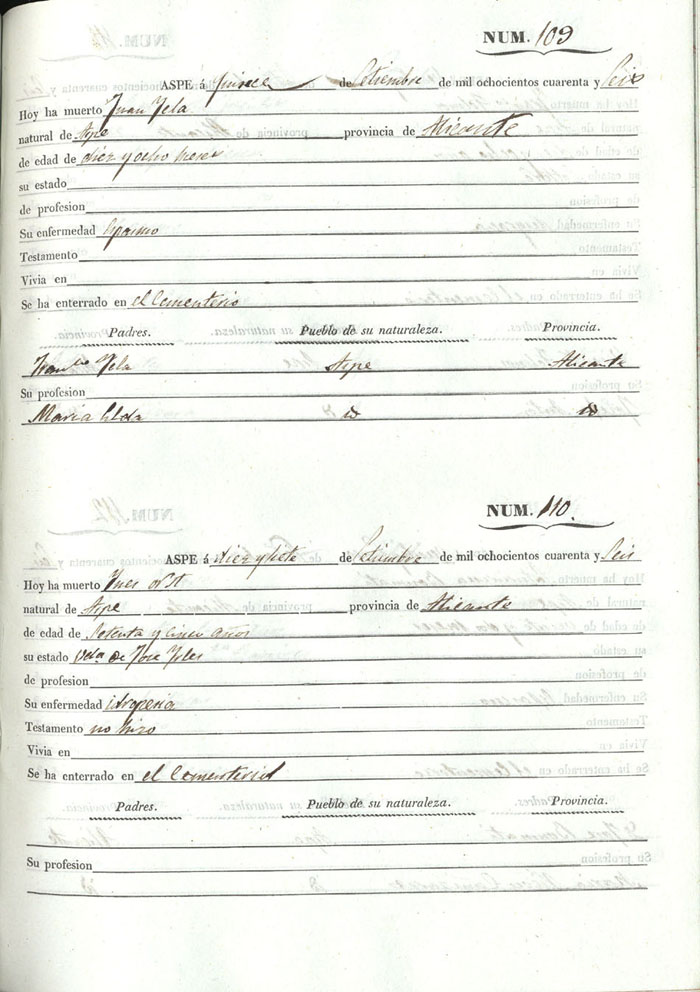 NUM. 109
ASPE á quince de Setiembre de mil ochocientos cuarenta y Seis
Hoy ha muerto Juan Yela
natural de Aspe provincia de Alicante
de edad de diez y ocho meses
su estado
de profesion
Su enfermedad Espasmo
Testamento
Vivia en
Se ha enterrado en el Cementerio
Padres. Pueblo de su naturaleza. Provincia.
Yela Aspe Alicante
Su profesion
Maria Elda id id
NUM. 110.
ASPE á diez y siete de Setiembre de mil ochocientos cuarenta y Seis
Hoy ha muerto Ynes
natural de Aspe provincia de Alicante
de edad de Setenta y cinco años
su estado Vda de Jose
de profesion
Su enfermedad idropesia
Testamento no hizo
Vivia en
Se ha enterrado en el Cementerio
Padres. Pueblo de su naturaleza. Provincia.
Su profesion